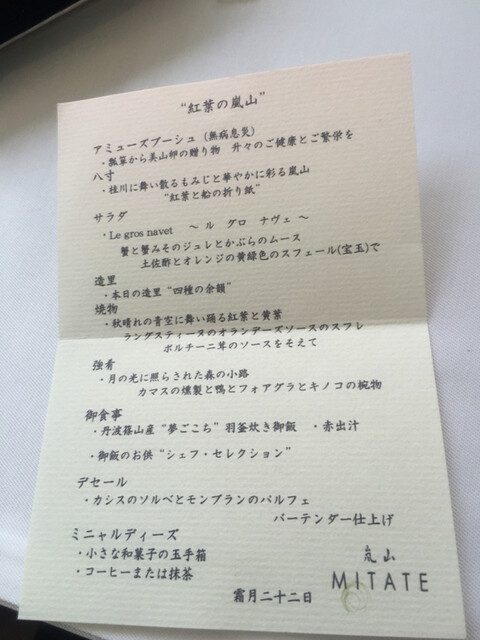 “紅葉の嵐山”
アミューズブーシュ（無病息災）
・瓢箪から美山卵の贈り物　升々のご健康とご繁栄を
八寸
・桂川に舞い散るもみじと華やかに彩る嵐山
“紅葉と船の折り紙”
サラダ
・Le gros navet　～ ル　グロ　ナヴェ ～
蟹と蟹みそのジュレとかぶらのムース
土佐酢とオレンジの黄緑色のスフェール(宝玉)で
造里
・本日の造里 “四種の余韻”
焼物
・秋晴れの青空に舞い踊る紅葉と黄葉
ラングスティーヌのオランデーズソースのスフレ
ポルチーニ茸のソースをそえて
強肴
・月の光に照らされた森の小路
カマスの燻製と鴨とフォアグラとキノコの椀物
御食事
・丹波篠山産 “夢ごこち” 羽釜炊き御飯　・赤出汁
・御飯のお供 “シェフ・セレクション”
デセール
・カシスのソルベとモンブランのパルフェ
バーテンダー仕上げ
ミニャルディーズ
・小さな和菓子の玉手箱
・コーヒーまたは抹茶
嵐山
MITATE
霜月二十二日